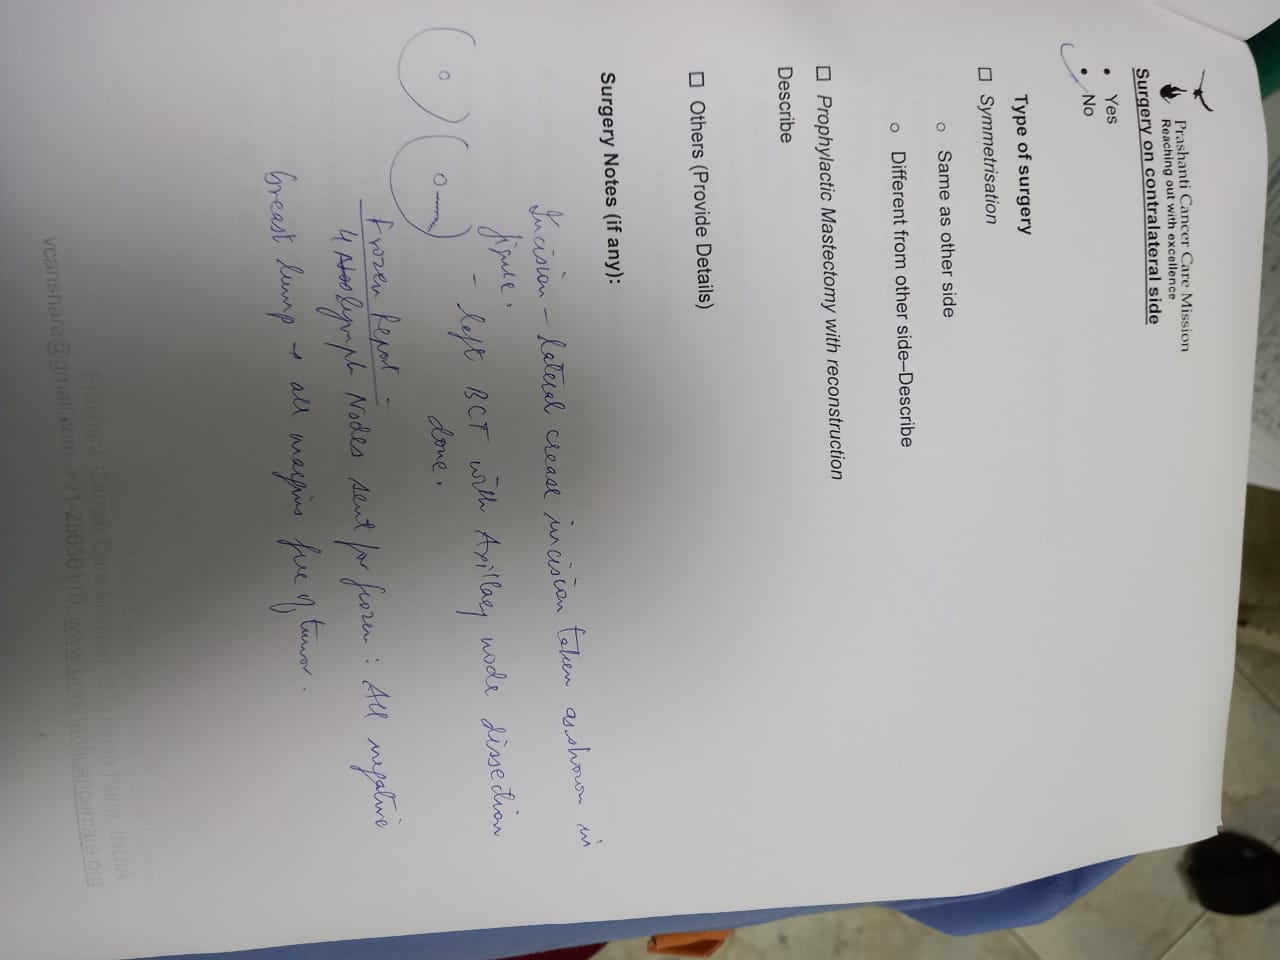 Prashanti Cancer Care Mission
Reaching out with excellence
Surgery on contralateral side
• Yes
• No
Type of surgery
☐ Symmetrisation
○ Same as other side
○ Different from other side–Describe
☐ Prophylactic Mastectomy with reconstruction
Describe
☐ Others (Provide Details)
Surgery Notes (if any):
Incision – lateral crease incision taken as shown in
figure.
– left BCT with Axillary node dissection
done.
Frozen Report –
4 Lymph Nodes sent for frozen : All negative
breast lump → all margins free of tumor.
Prashanti Cancer Care Mission
Pune, INDIA
vcanshare@gmail.com +91-25656110, www.prashanticancercare.org